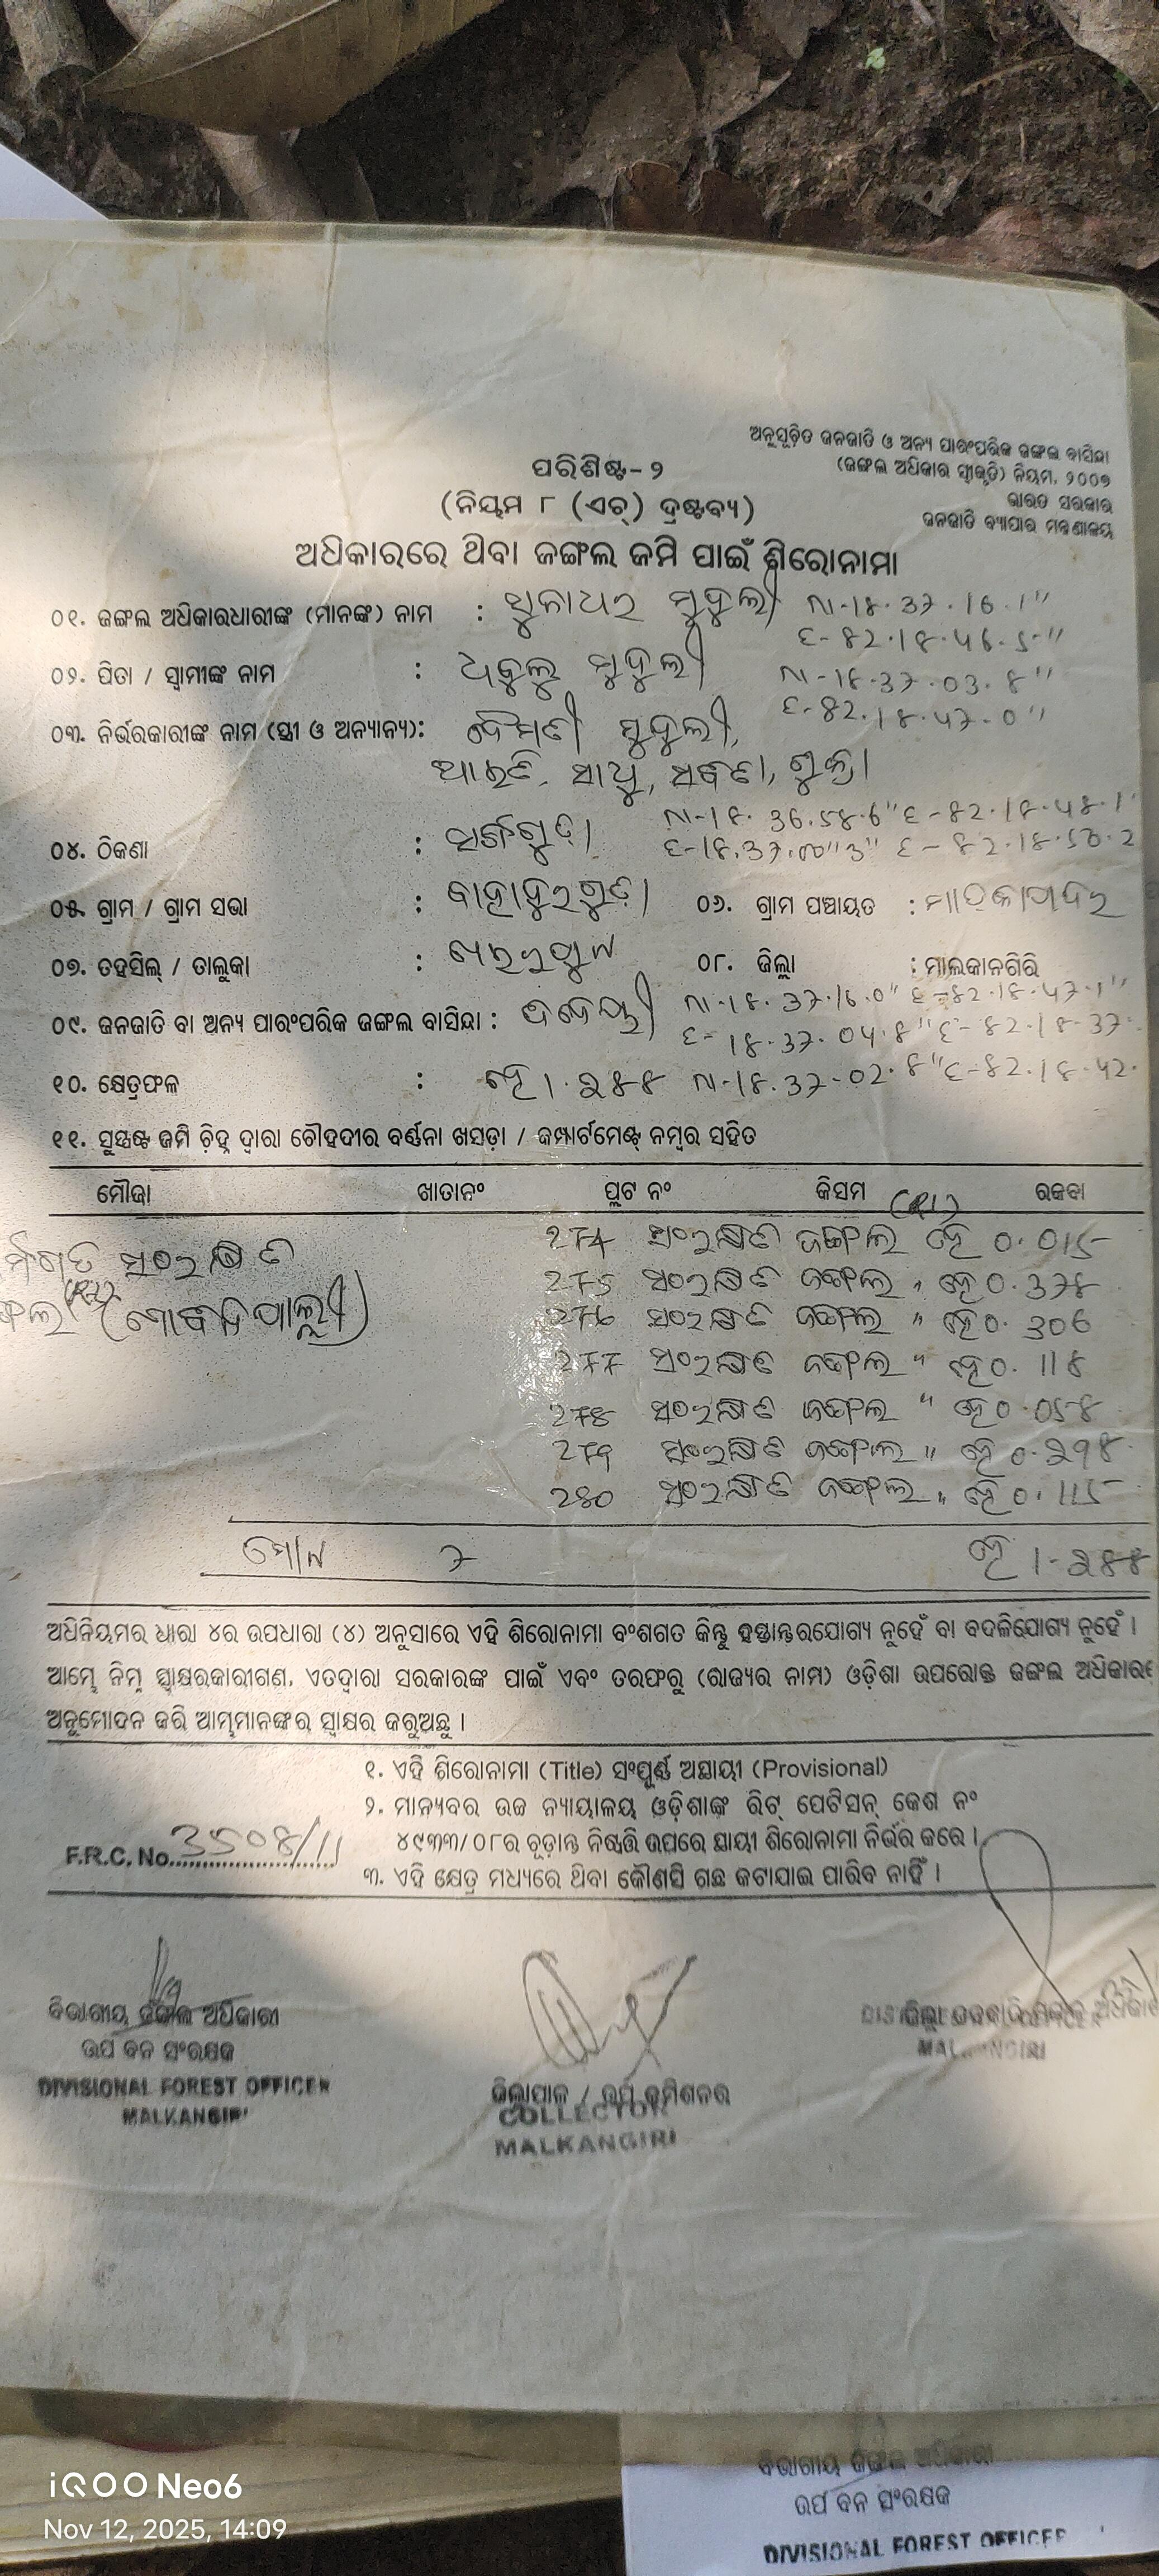 ଅନୁସୂଚିତ ଜନଜାତି ଓ ଅନ୍ୟ ପାରଂପରିକ ଜଙ୍ଗଲ ବାସିନ୍ଦା
(ଜଙ୍ଗଲ ଅଧିକାର ସ୍ୱୀକୃତି) ନିୟମ, ୨୦୦୭
ଭାରତ ସରକାର
ଜନଜାତି ବ୍ୟାପାର ମନ୍ତ୍ରଣାଳୟ
ପରିଶିଷ୍ଟ- ୨
(ନିୟମ ୮ (ଏଚ୍) ଦ୍ରଷ୍ଟବ୍ୟ)
ଅଧିକାରରେ ଥିବା ଜଙ୍ଗଲ ଜମି ପାଇଁ ଶିରୋନାମା
୦୧. ଜଙ୍ଗଲ ଅଧିକାରଧାରୀଙ୍କ (ମାନଙ୍କ) ନାମ : ମୁଦୁଲୀ N-18.37.16.1"
E-82.18.46.5"
୦୨. ପିତା / ସ୍ୱାମୀଙ୍କ ନାମ : ଧବୁଲୁ ମୁଦୁଲୀ N-18.37.03.8"
୦୩. ନିର୍ଭରକାରୀଙ୍କ ନାମ (ସ୍ତ୍ରୀ ଓ ଅନ୍ୟାନ୍ୟ): ମୁଦୁଲୀ, E-82.18.47.0"
ସାଧୁ,
N-18.36.58.6" E-82.18.48.1"
୦୪. ଠିକଣା : E-82.18.50.2
୦୫. ଗ୍ରାମ / ଗ୍ରାମ ସଭା : ବାହାଦୁରଗୁଡ଼ା ୦୬. ଗ୍ରାମ ପଞ୍ଚାୟତ :
୦୭. ତହସିଲ୍ / ତାଲୁକା : ଖଇରପୁଟ ୦୮. ଜିଲ୍ଲା : ମାଲକାନଗିରି
N-18.37.16.0" E-82.18.47.1"
୦୯. ଜନଜାତି ବା ଅନ୍ୟ ପାରଂପରିକ ଜଙ୍ଗଲ ବାସିନ୍ଦା : E-18.37.04.8" E-82.18.37.
୧୦. କ୍ଷେତ୍ରଫଳ : ହେ 1.288 N-18.37-02.8" E-82.18.42.
୧୧. ସୁସ୍ପଷ୍ଟ ଜମି ଚିହ୍ନ ଦ୍ୱାରା ଚୌହଦୀର ବର୍ଣ୍ଣନା ଖସଡ଼ା / କମ୍ପାର୍ଟମେଣ୍ଟ୍ ନମ୍ବର ସହିତ
ମୌଜା ଖାତାନଂ ପ୍ଲଟ ନଂ କିସମ ରକବା
274 ସଂରକ୍ଷିତ ଜଙ୍ଗଲ ହେ 0.015
ସଂରକ୍ଷିତ
275 ସଂରକ୍ଷିତ ଜଙ୍ଗଲ " ହେ 0.378
276 ସଂରକ୍ଷିତ ଜଙ୍ଗଲ " ହେ 0.306
277 ସଂରକ୍ଷିତ ଜଙ୍ଗଲ " ହେ 0.118
278 ସଂରକ୍ଷିତ ଜଙ୍ଗଲ " ହେ 0.058
279 ସଂରକ୍ଷିତ ଜଙ୍ଗଲ " ହେ 0.298
280 ସଂରକ୍ଷିତ ଜଙ୍ଗଲ " ହେ 0.115
ମୋଟ 7 ହେ 1.288
ଅଧିନିୟମର ଧାରା ୪ର ଉପଧାରା (୪) ଅନୁସାରେ ଏହି ଶିରୋନାମା ବଂଶଗତ କିନ୍ତୁ ହସ୍ତାନ୍ତରଯୋଗ୍ୟ ନୁହେଁ ବା ବଦଳିଯୋଗ୍ୟ ନୁହେଁ ।
ଆମ୍ଭେ ନିମ୍ନ ସ୍ୱାକ୍ଷରକାରୀଗଣ, ଏତଦ୍ୱାରା ସରକାରଙ୍କ ପାଇଁ ଏବଂ ତରଫରୁ (ରାଜ୍ୟର ନାମ) ଓଡ଼ିଶା ଉପରୋକ୍ତ ଜଙ୍ଗଲ
ଅନୁମୋଦନ କରି ଆମ୍ଭମାନଙ୍କର ସ୍ୱାକ୍ଷର କରୁଅଛୁ ।
୧. ଏହି ଶିରୋନାମା (Title) ସଂପୂର୍ଣ୍ଣ ଅସ୍ଥାୟୀ (Provisional)
୨. ମାନ୍ୟବର ଉଚ୍ଚ ନ୍ୟାୟାଳୟ ଓଡ଼ିଶାଙ୍କ ରିଟ୍ ପେଟିସନ୍ କେଶ ନଂ
୪୯୩୩/୦୮ର ଚୂଡ଼ାନ୍ତ ନିଷ୍ପତ୍ତି ଉପରେ ସ୍ଥାୟୀ ଶିରୋନାମା ନିର୍ଭର କରେ ।
F.R.C. No. 3508/11
୩. ଏହି କ୍ଷେତ୍ର ମଧ୍ୟରେ ଥିବା କୌଣସି ଗଛ କଟାଯାଇ ପାରିବ ନାହିଁ ।
ବିଭାଗୀୟ ଜଙ୍ଗଲ ଅଧିକାରୀ
ଉପ ବନ ସଂରକ୍ଷକ
DIVISIONAL FOREST OFFICER
MALKANGIRI
ଜିଲ୍ଲାପାଳ / ଉପ କମିଶନର
COLLECTOR
MALKANGIRI
ଜିଲ୍ଲା
MALKANGIRI
ବିଭାଗୀୟ ଜଙ୍ଗଲ ଅଧିକାରୀ
ଉପ ବନ ସଂରକ୍ଷକ
DIVISIONAL FOREST OFFICER
iQOO Neo6
Nov 12, 2025, 14:09